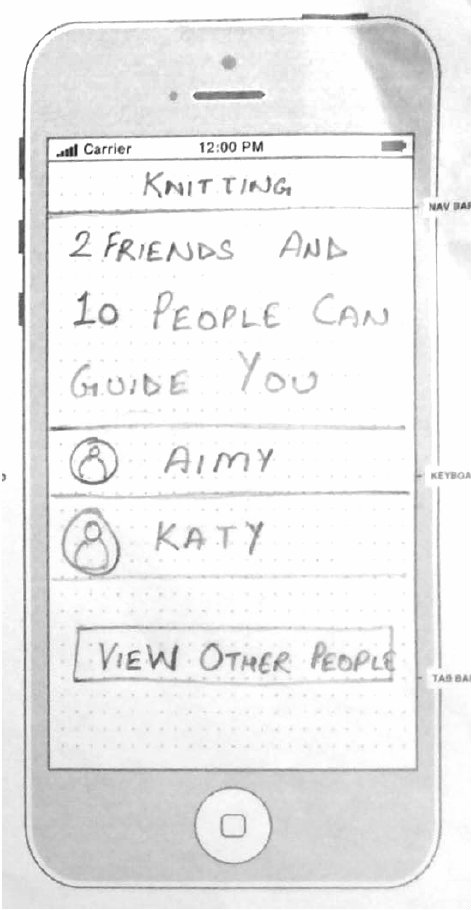 Carrier 12:00 PM
KNITTING
NAV BAR
2 FRIENDS AND
10 PEOPLE CAN
GUIDE YOU
AIMY
KEYBOA
KATY
VIEW OTHER PEOPLE
TAB BAR